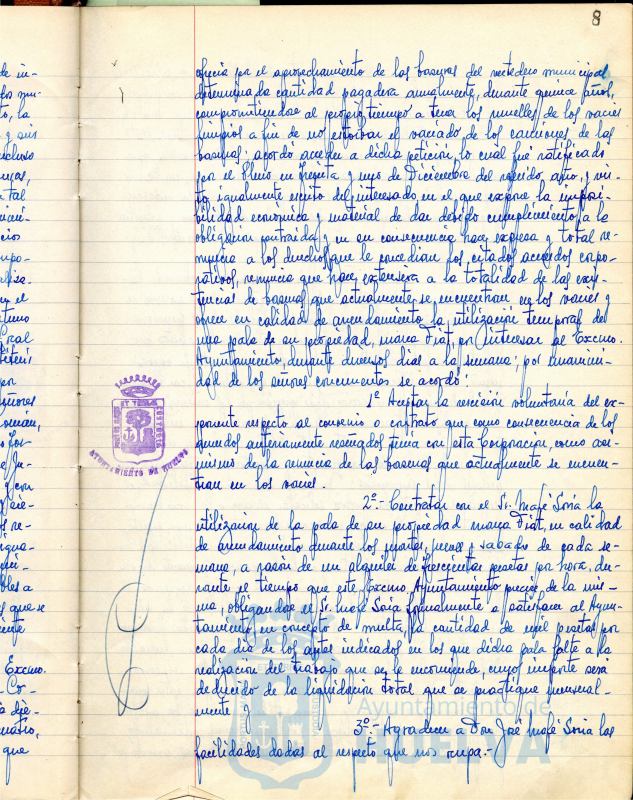 8
ofrecía por el aprovechamiento de las basuras del vertedero municipal
determinada cantidad pagadera anualmente, durante quince años,
comprometiéndose al propio tiempo a tener los muelles de los vacies
limpios a fin de no estorbar el vaciado de los camiones de las
basuras: acordó acceder a dicha petición, lo cual fué ratificado
por el Pleno en treinta y uno de Diciembre del referido año, y vis-
to igualmente escrito del interesado en el que expone la imposi-
bilidad económica y material de dar debido cumplimiento a la
obligación contraída y en su consecuencia hace expresa y total re-
nuncia a los derechos que le concedían los citados acuerdos corpo-
rativos, renuncia que hace extensiva a la totalidad de las exis-
tencias de basuras que actualmente se encuentran en los vacies y
ofrece en calidad de arrendamiento la utilización temporal de
una pala de su propiedad, marca Fiat, por interesar al Excmo.
Ayuntamiento, durante diversos días a la semana; por unanimi-
dad de los señores concurrentes se acordó:
1º Aceptar la rescisión voluntaria del ex-
ponente respecto al convenio o contrato que como consecuencia de los
acuerdos anteriormente reseñados tenía con esta Corporación, como asi-
mismo de la renuncia de las basuras que actualmente se encuen-
tran en los vacies.
2º.- Contratar con el Sr. Mafé Soria la
utilización de la pala de su propiedad marca Fiat, en calidad
de arrendamiento durante los martes, jueves y sabados de cada se-
mana, a razón de un alquiler de trescientas pesetas por hora, du-
rante el tiempo que este Excmo Ayuntamiento precise de la mis-
ma, obligandose el Sr. Mafé Soria formalmente a satisfacer al Ayun-
tamiento, en concepto de multa, la cantidad de mil pesetas por
cada día de los antes indicados en los que dicha pala falte a la
realización del trabajo que se le encomiende, cuyo importe será
deducido de la liquidación total que se practique mensual-
mente.
3º.- Agradecer a Don José Mafé Soria las
facilidades dadas al respecto que nos ocupa.-
AYUNTAMIENTO DE HUELVA
Ayuntamiento de
HUELVA